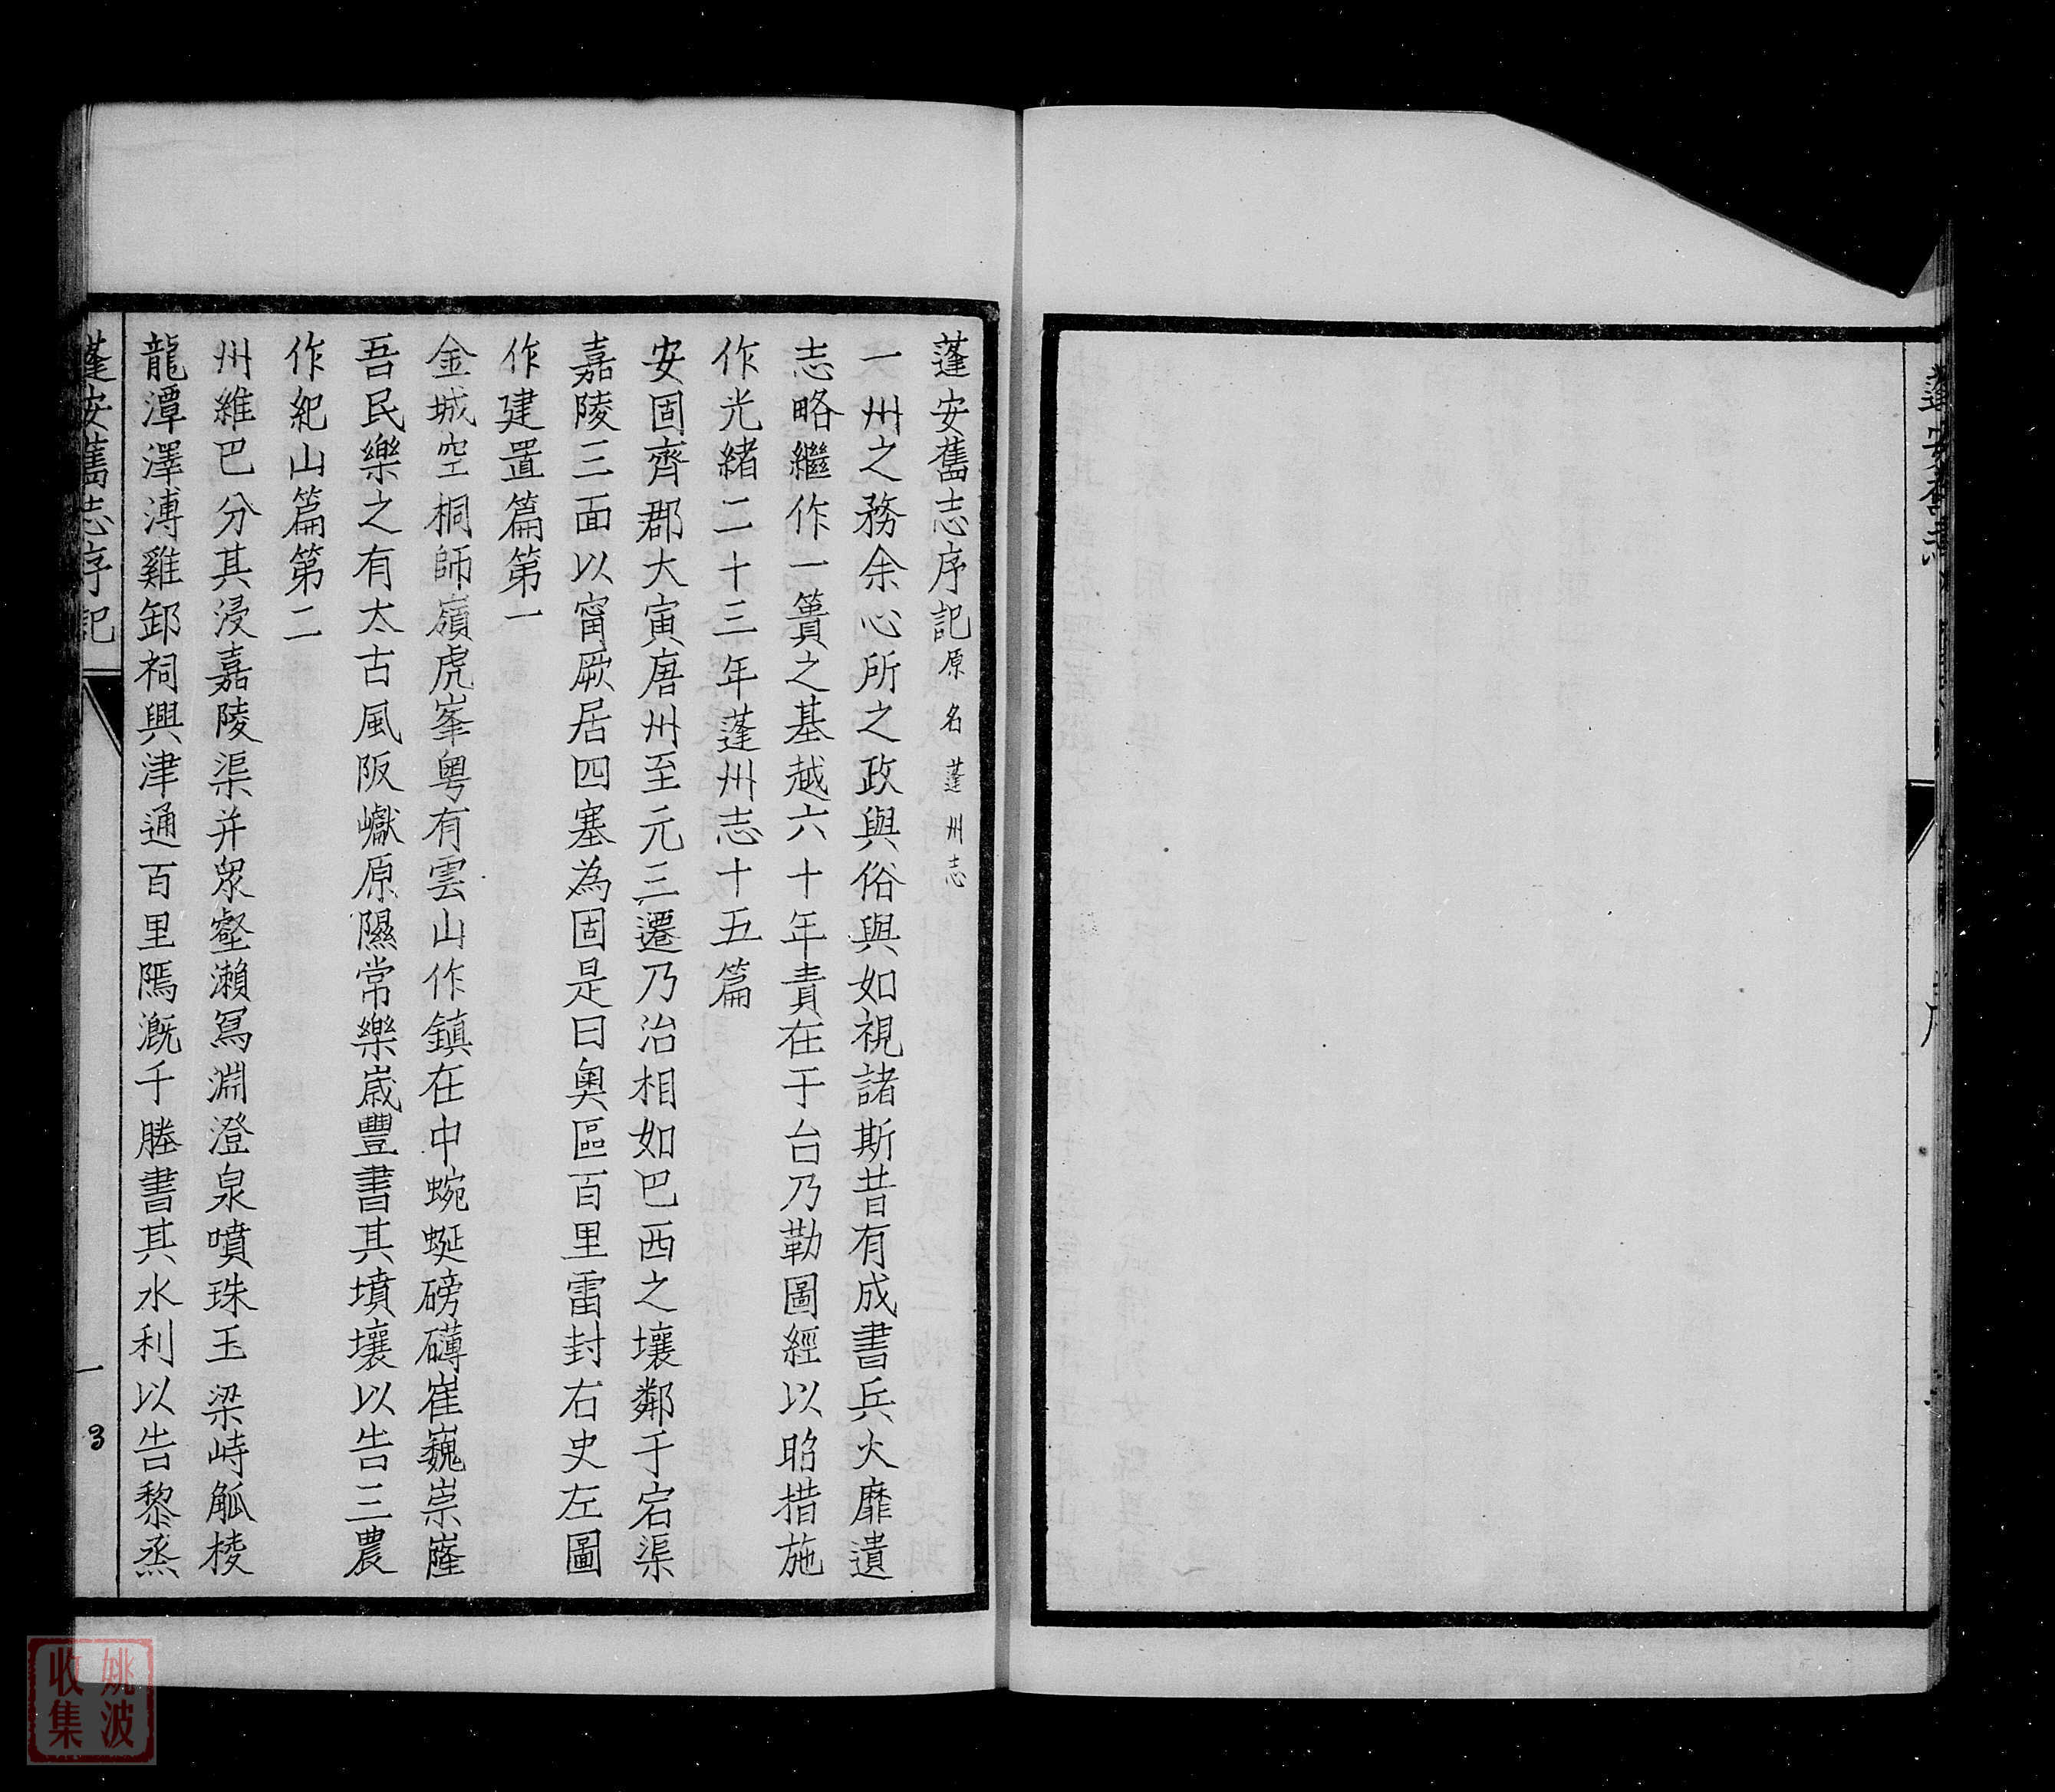 蓬安舊志序記原名蓬州志
一州之務余心所之政與俗與如視諸斯昔有成書兵火靡遺
志略繼作一簣之基越六十年責在于台乃勒圖經以昭措施
作光緒二十三年蓬州志十五篇
安固齊郡大寅唐州至元三遷乃治相如巴西之壤鄰于宕渠
嘉陵三面以甯厥居四塞為固是曰奧區百里雷封右史左圖
作建置篇第一
金城空桐師嶺虎峯粤有雲山作鎮在中蜿蜒磅礴崔巍崇窿
吾民樂之有太古風阪巘原隰常樂歲豐書其墳壤以告三農
作紀山篇第二
州維巴分其浸嘉陵渠并衆壑瀨冩淵澄泉噴珠玉梁峙觚棱
龍潭澤溥雞卸祠興津通百里隝溉千塍書其水利以告黎烝
蓬安舊志序記
一
3
姚波
收集